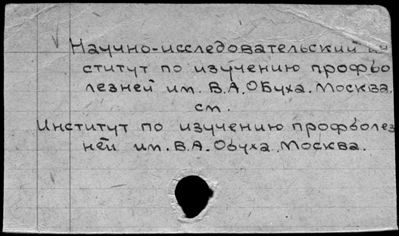 Научно-исследовательский ин
ститут по изучению профбо
лезней им. В.А. Обуха. Москва.
см.
Институт по изучению профболез
ней им. В.А. Обуха. Москва.